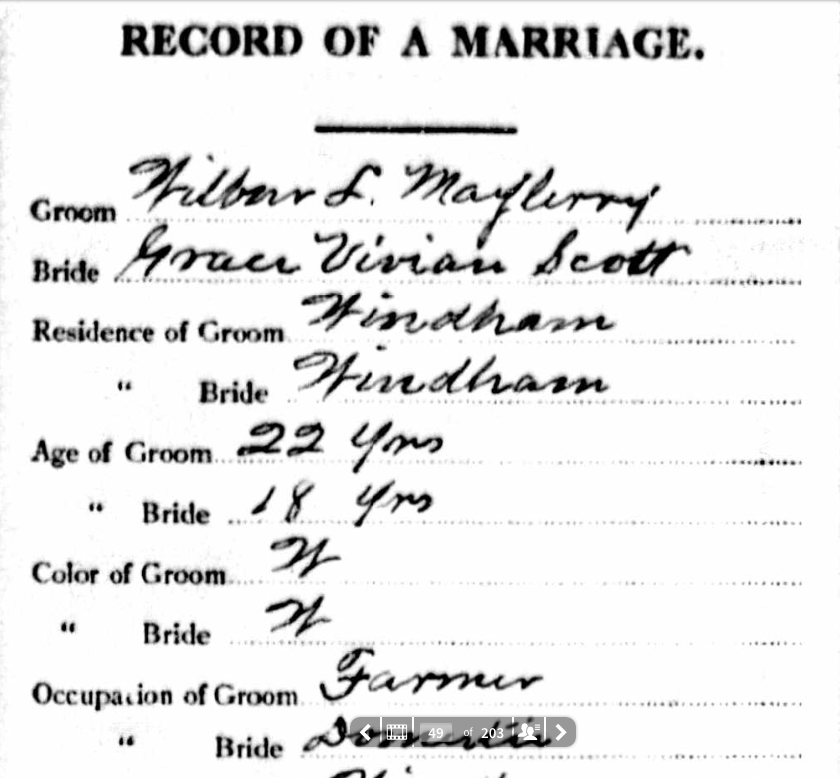 RECORD OF A MARRIAGE.
Groom Wilbur L. Mayberry
Bride Grace Vivian Scott
Residence of Groom Windham
" Bride Windham
Age of Groom 22 Yrs
" Bride 18 Yrs
Color of Groom W
" Bride W
Occupation of Groom Farmer
" Bride
49 of 203